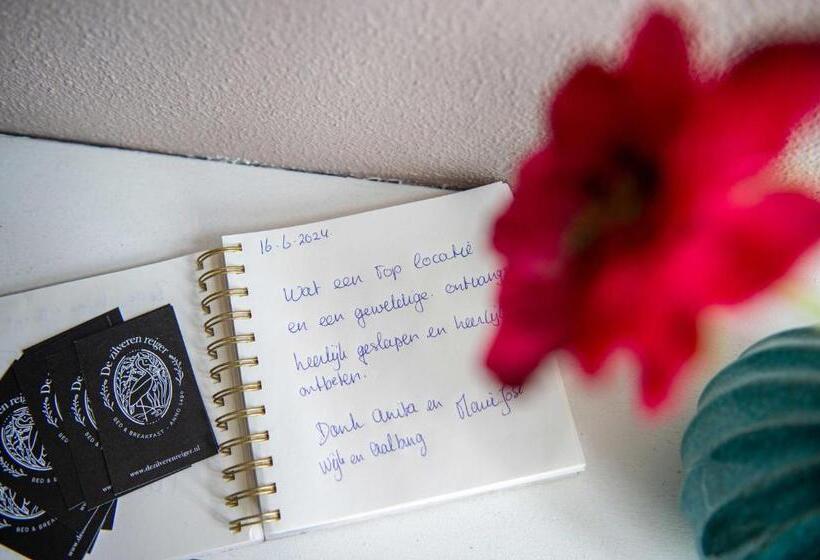 16-6-2024
Wat een Top locatie
en een geweldige. ontvangs
heerlijk geslapen en heerlijk
ontbeten.
Dank Anita en Marie José
Wijk en Aalburg
De zilveren reiger
BED & BREAKFAST - ANNO 1491
www.dezilverenreiger.nl